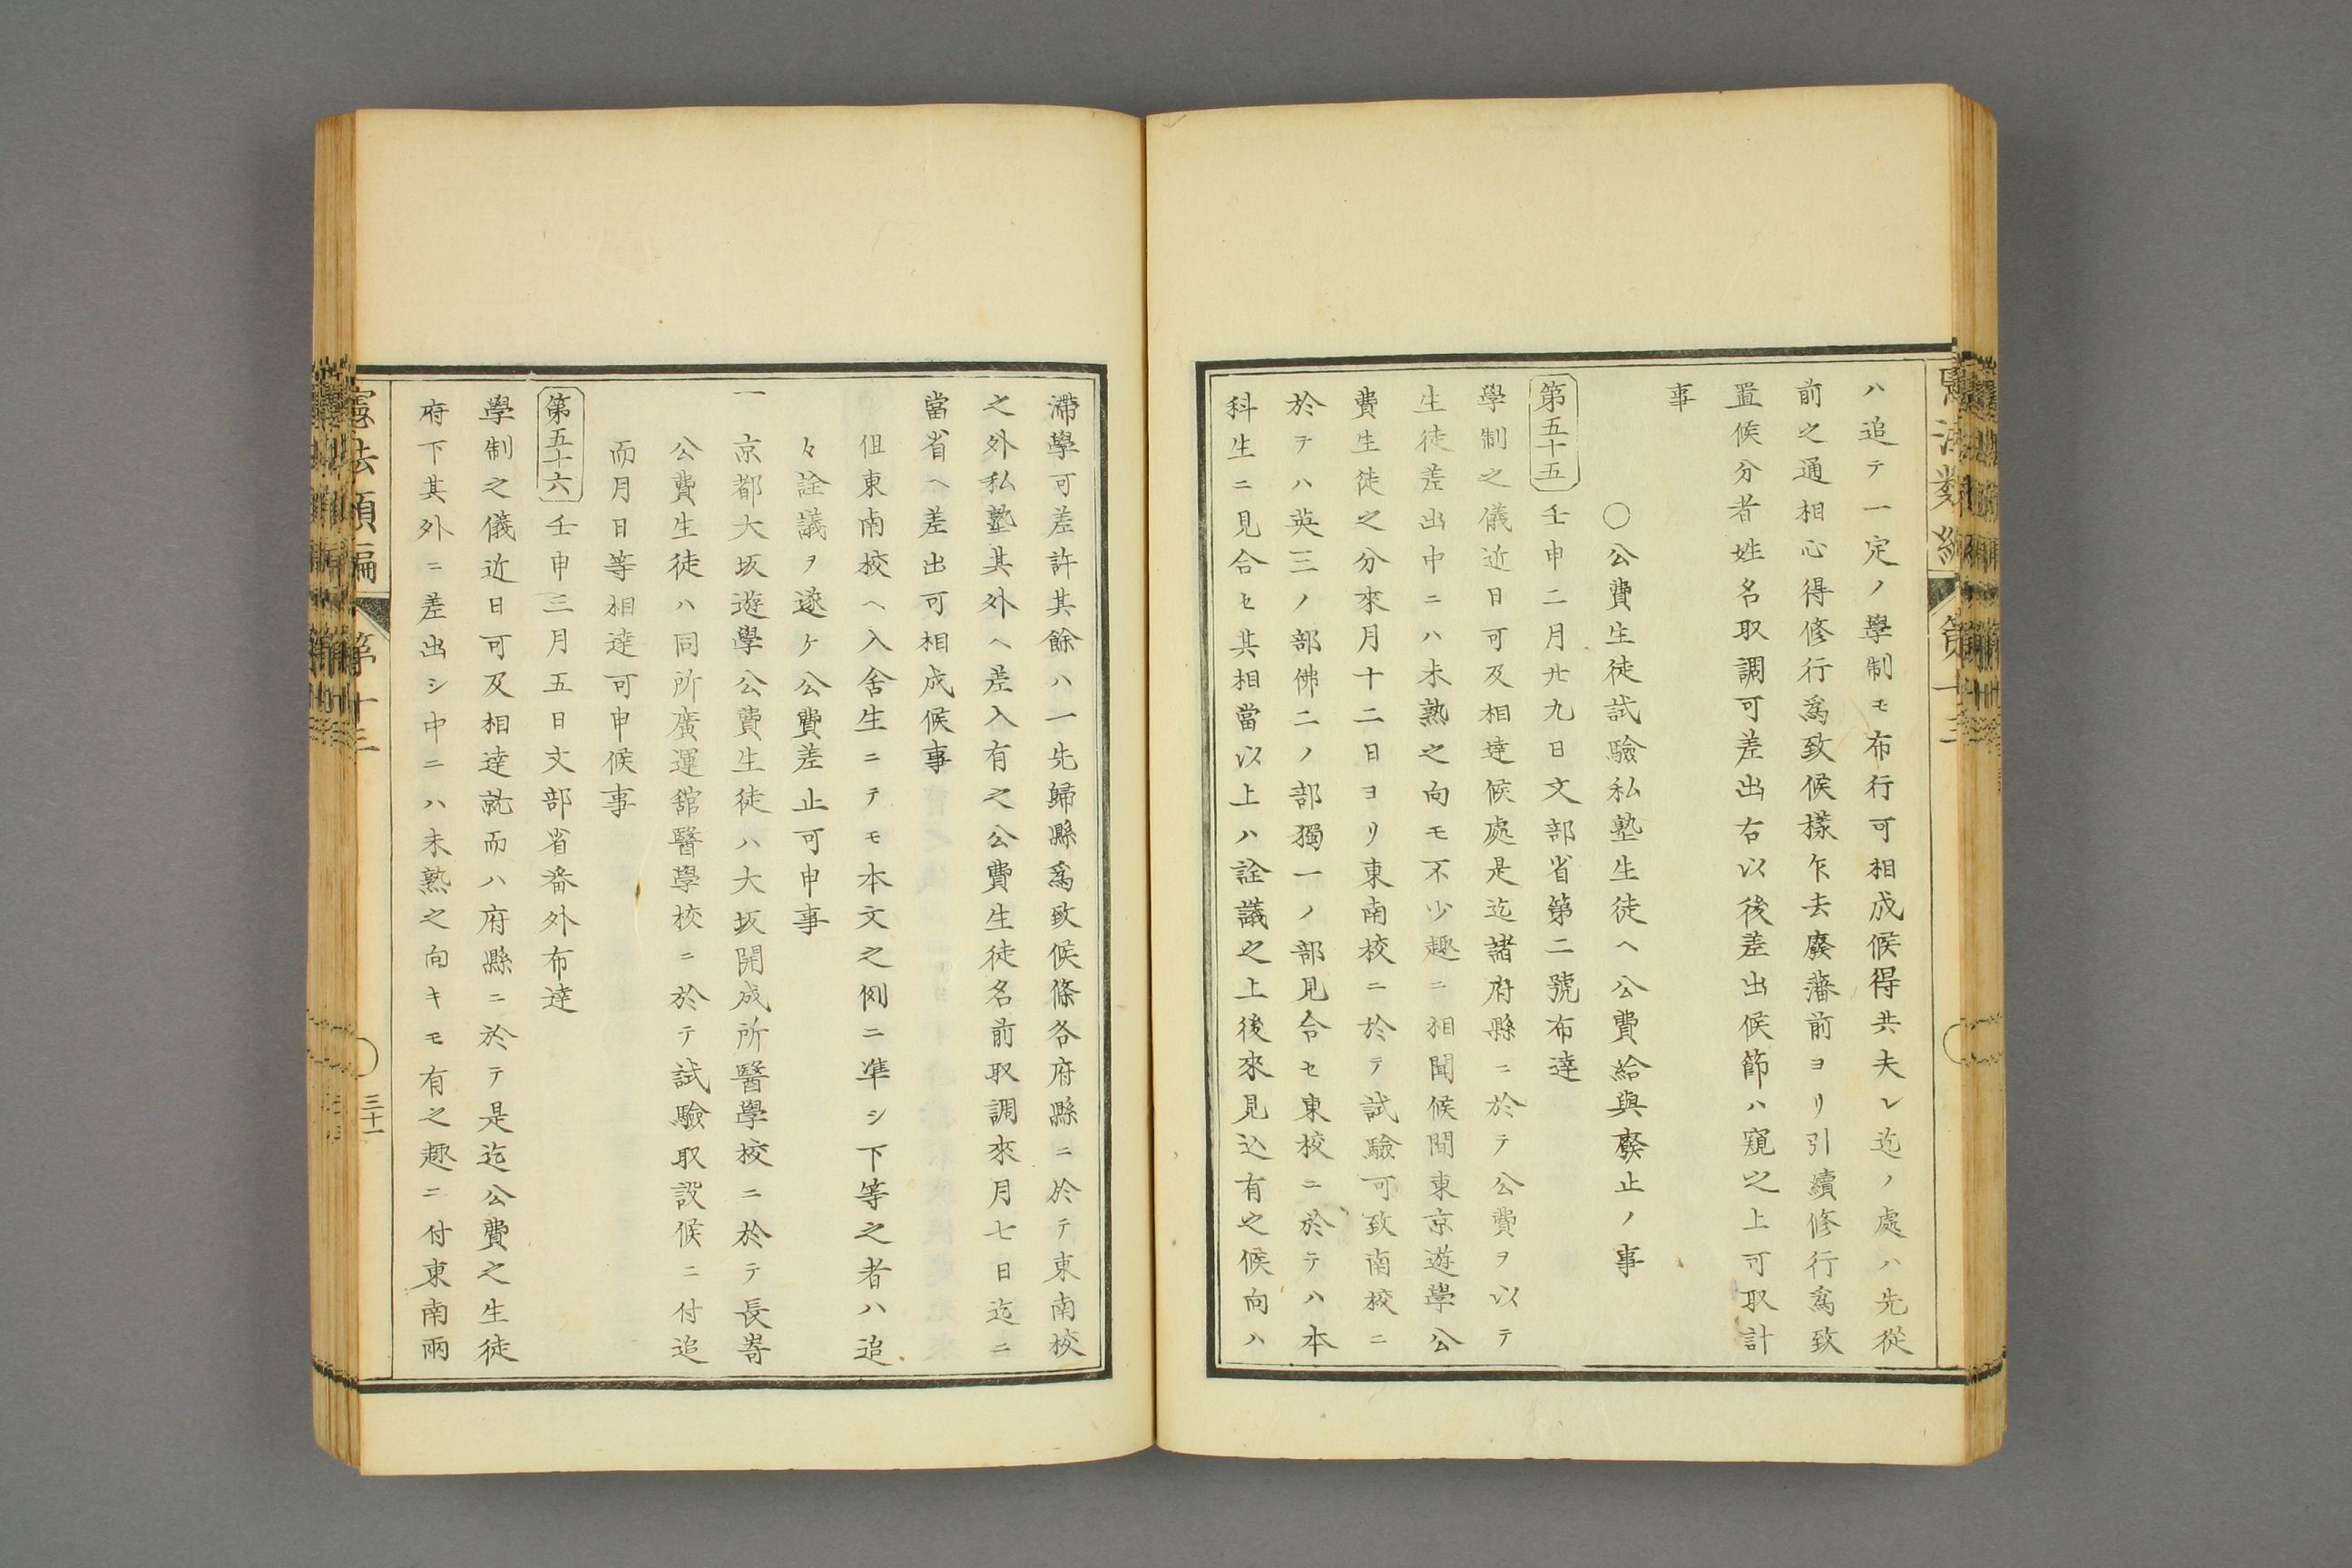 ハ追テ一定ノ學制モ布行可相成候得共夫レ迄ノ處ハ先從
前之通相心得修行爲致候樣乍去廢藩前ヨリ引續修行爲致
置候分者姓名取調可差出右以後差出候節ハ窺之上可取計
事
○公費生徒試驗私塾生徒ヘ公費給與廢止ノ事
第五十五 壬申二月廿九日文部省第二號布達
學制之儀近日可及相達候處是迄諸府縣ニ於テ公費ヲ以テ
生徒差出中ニハ未熟之向モ不少趣ニ相聞候間東京遊學公
費生徒之分來月十二日ヨリ東南校ニ於テ試驗可致南校ニ
於テハ英三ノ部佛二ノ部獨一ノ部見合セ東校ニ於テハ本
科生ニ見合セ其相當以上ハ詮議之上後來見込有之候向ハ
滯學可差許其餘ハ一先歸縣爲致候條各府縣ニ於テ東南校
之外私塾其外ヘ差入有之公費生徒名前取調來月七日迄ニ
當省ヘ差出可相成候事
但東南校ヘ入舍生ニテモ本文之例ニ準シ下等之者ハ追
々詮議ヲ遂ケ公費差止可申事
一 京都大坂遊學公費生徒ハ大坂開成所醫學校ニ於テ長嵜
公費生徒ハ同所廣運舘醫學校ニ於テ試驗取設候ニ付追
而月日等相達可申候事
第五十六 壬申三月五日文部省番外布達
學制之儀近日可及相達就而ハ府縣ニ於テ是迄公費之生徒
府下其外ニ差出シ中ニハ未熟之向キモ有之趣ニ付東南兩
憲法類編 第十三
三十一